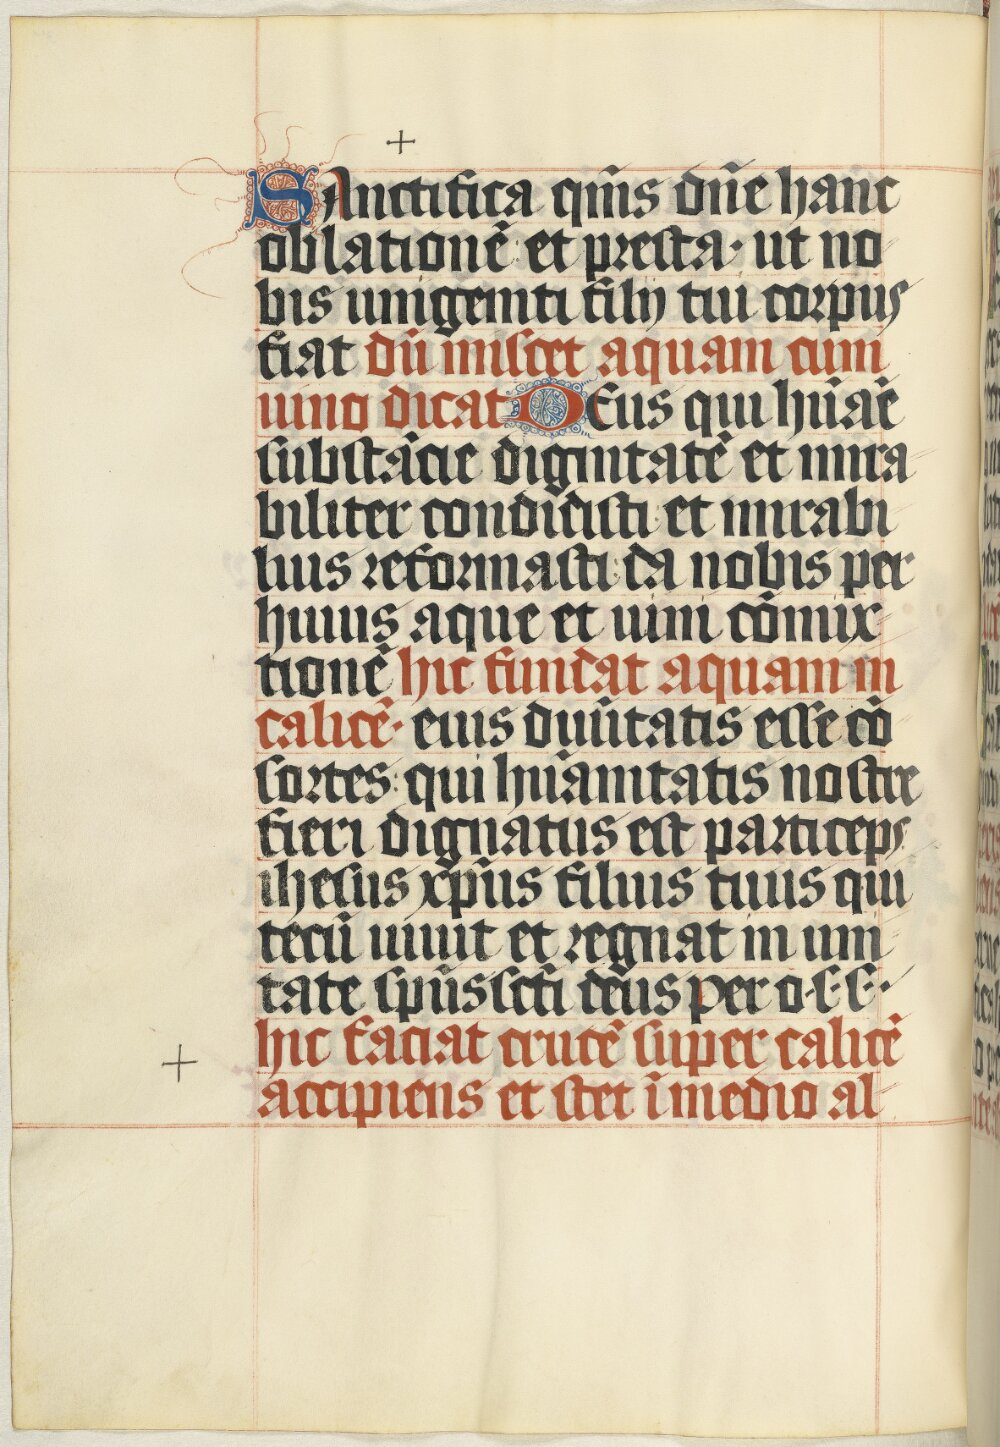 SAnctifica qm̄s dn̄e hanc
oblationē et presta· ut no
bis unigeniti filij tui corpus
fiat dū miscet aquam cum
uino dicat DEus qui hūāē
substācie dignitatē et mira
biliter condidisti et mirabi
lius reformasti da nobis per
huius aque et uini cōmix
tionē hic fundat aquam in
calicē· eius diuītatis esse cō
sortes: qui hūānitatis nostre
fieri dignatus est particeps
ihesus xp̄us filius tuus qui
tecū uiuit et regnat in uni
tate sp̄us sc̄ti deus per o·s·s·
hic faciat crucē super calicē
accipiens et stet ī medio al